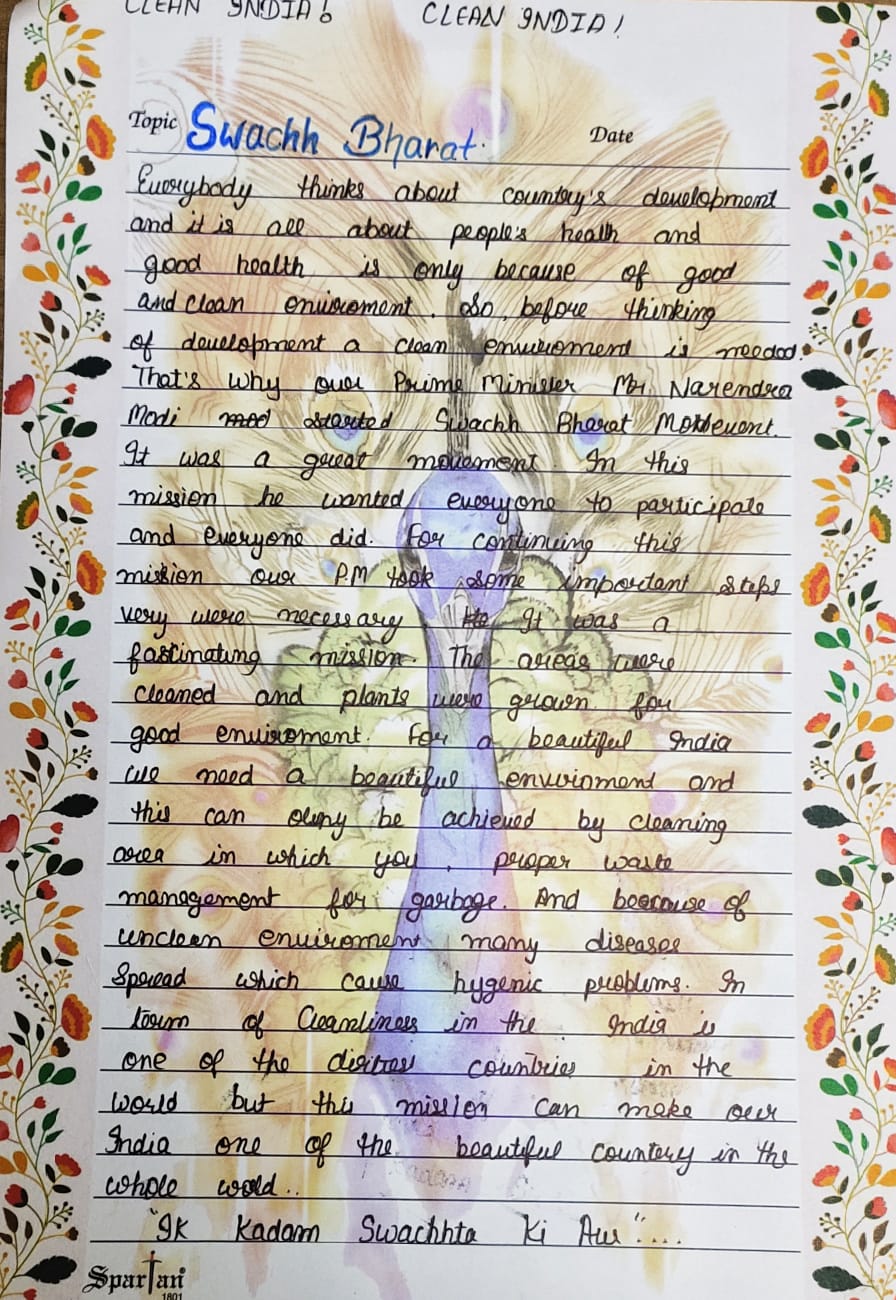 CLEAN INDIA! CLEAN INDIA!
Topic Swachh Bharat. Date
Everybody thinks about country's development
and it is all about people's health and
good health is only because of good
and clean enviroment. So, before thinking
of development a clean enviroment is needed.
That's why our Prime Minister Mr. Narendra
Modi started Swachh Bharat Movement.
It was a great movement. In this
mission he wanted everyone to participate
and everyone did. For continuing this
mission our P.M took some important steps
very were necessary It was a
fascinating mission. The areas were
cleaned and plants were grown for
good enviroment. For a beautiful India
we need a beautiful envuirnment and
this can be achieved by cleaning
area in which you, proper waste
management for garbage. And beacause of
unclean enviroment many diseases
Spread which cause hygenic problems. In
tourm of Cleanliness in the India is
one of the countries in the
world but this mission can make our
India one of the beautiful countery in the
whole world..
"Ik Kadam Swachhta Ki Aur"....
Spartan
1801